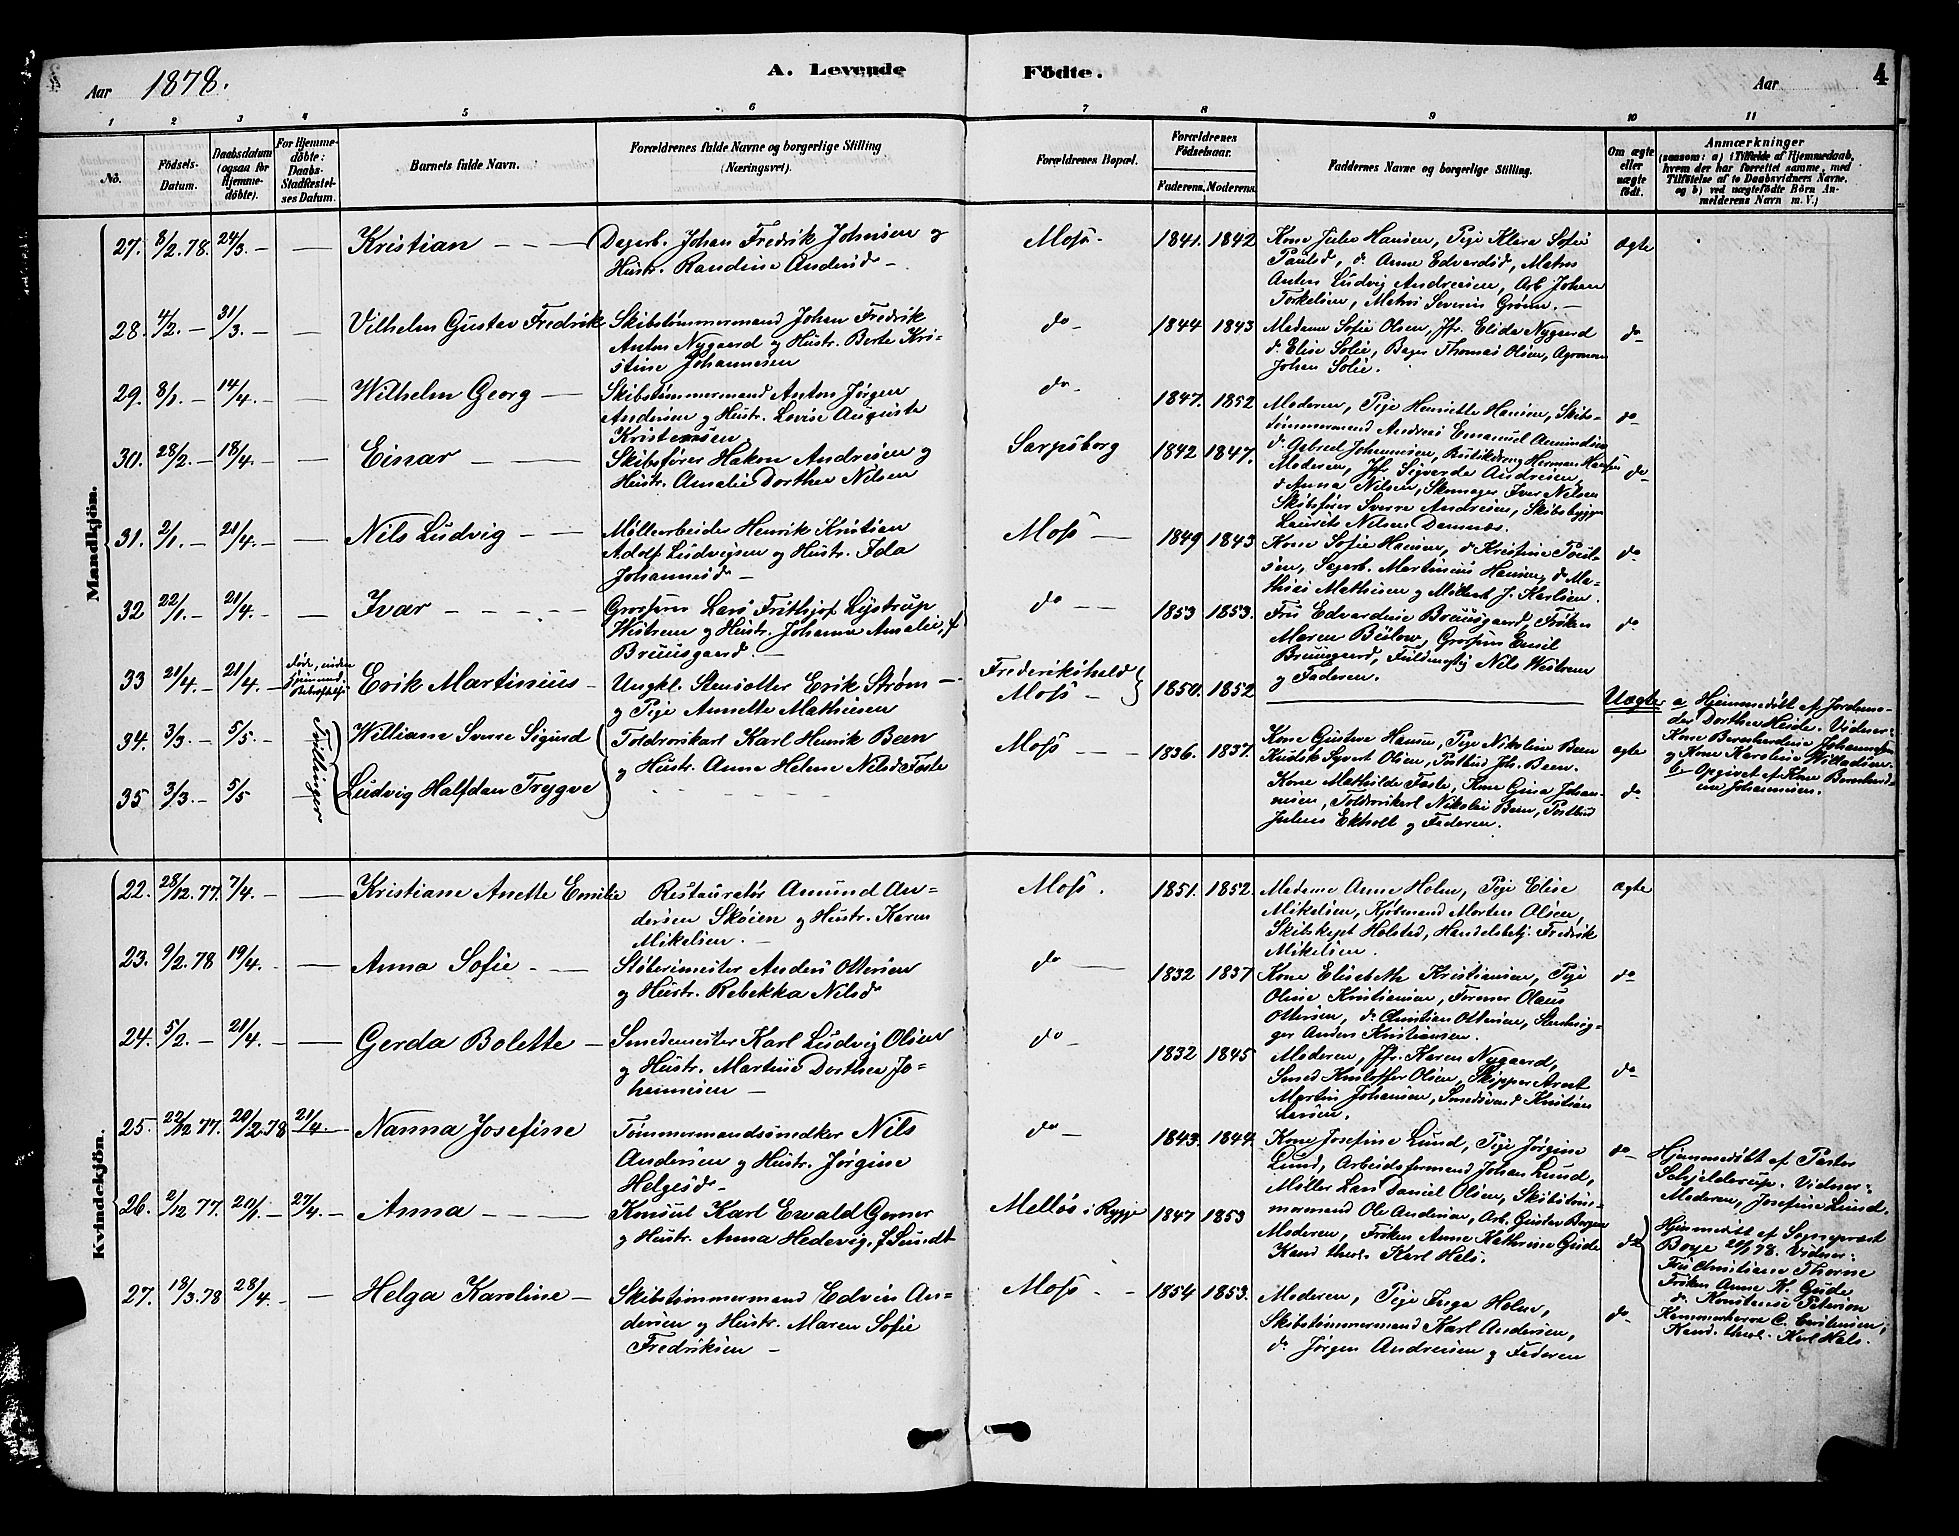 Aar 1878.
A. Levende
Födte.
Aar
4
1 2 3 4 5 6 7 8 9 10 11
No.
Födsels-
Datum.
Daabsdatum
(ogsaa for
Hjemme-
döbte).
For Hjemme-
döbte:
Daabs-
Stadfæstel-
ses Datum.
Barnets fulde Navn.
Forældrenes fulde Navne og borgerlige Stilling
(Næringsvei).
Forældrenes Bopæl.
Forældrenes
Födselsaar.
Faderens. Moderens.
Faddernes Navne og borgerlige Stilling.
Om ægte
eller
uægte
födt.
Anmærkninger
(saasom: a) i Tilfælde af Hjemmedaab,
hvem der har forrettet samme, med
Tilföielse af to Daabsvidners Navne,
og b) ved uægtefödte Börn An-
melderens Navn m. V.)
Mandkjön.
27. 8/2.78. 24/3. — — Kristian
Dagarb. Johan Fredrik Johnsen og
Hustr. Randine Andersd —
Moss.
1841. 1842
Kone Julie Hansen, Pige Klara Sofie
Paulsd, do Anne Edvardsd, Matros
Anton Ludvig Andreasen, Arb. Johan
Torkelsen, Matros Severin Grønn. —
Ægte
28. 4/2. — 31/3. — — Vilhelm Gustav Fredrik
Skibstømmermand Johan Fredrik
Anton Nygaard og Hustr. Berte Kri-
stine Johannesen
do —
1844 1843
Madame Sofie Olsen, Jfr. Elida Nygaard
do Elise Solie, Bager Thomas Olsen, Agronom
Johan Solie.
do
29. 8/1. — 14/4. — — Wilhelm Georg —
Skibstømmermand Anton Jørgen
Andersen og Hustr. Lovise Auguste
Kristensen
do
1847. 1852
Moderen, Pige Henriette Hansen, Skibs-
tømmermand Andreas Emanuel Amundsen
do Gabriel Johannesen, Butikdreng Herman Hansen
do
30. 28/2. — 18/4. — — Einar —
Skibsfører Hakon Andresen og
Hustr. Amalie Dorthea Nilsen
Sarpsborg
1842 1847.
Moderen, Jfr. Sigvarda Andresen,
do Anna Nilsen, Skomager Iver Nilsen
Skibsfører Sverre Andresen, Skibsbygr.
Laurits Nilsen Damnæs.
do
31. 2/1. — 21/4. — — Nils Ludvig —
Møllearbeider Henrik Kristian
Adolf Ludvigsen og Hustr. Ida
Johannesd —
Moss —
1849 1843
Kone Sofie Hansen, do Kristine Poul-
sen, Sagarb. Martinius Hansen, do Ma-
thias Mathisen og Møllerb. J. Karlsen.
do
32 22/1. — 21/4. — — Ivar
Grosserer Lars Frithjof Lystrup
Westrem og Hustr. Johanna Amalie, f.
Bruusgaard. —
do —
1853 1853.
Fru Edvardine Bruusgaard, Frøken
Maren Bülow, Grosserer Emil
Bruusgaard, Fuldmægtig Nils Westrem
og Faderen.
do
33 21/4. — 21/4. — Døde, inden
Hjemmed.
Stadfæstelse
Erik Martinius —
Ungkl. Stensætter Erik Strøm —
og Pige Annette Mathisen
Frederikshald
Moss —
1850. 1852
Uægte
a Hjemmedøbt af Jordemo-
der Dorthea Hvide. Vidner:
Kone Bernhardine Johannesen
og Kone Karoline Willadsen.
b Opgivet af Kone Bernhard-
ine Johannesen.
34. 3/3. — 5/5. — Tvillinger William Sverre Sigurd
Toldroerkarl Karl Henrik Been
og Hustr. Anne Helene Nilsd Faste
Moss —
1836. 1837.
Kone Gustava Hansen, Pige Nikoline Been
Kudsk Syvert Olsen, Postbud Joh. Been.
ægte
35 3/3. — 5/5 — Ludvig Halfdan Trygve
Kone Mathilde Faste, Kone Gina Johan-
nesen, Toldroerkarl Nikolai Been, Postbud
Julius Ekholt og Faderen.
do
Kvindekjön.
22. 28/12.77. 7/4. — — Kristiane Anette Emilie
Restauratør Amund An-
dersen Skøien og Hustr. Karen
Mikelsen. —
Moss.
1851. 1852.
Madame Anne Holm, Pige Elise
Mikelsen, Kjøbmand Morten Olsen,
Skibskapt Holsted, Handelsbetj. Fredrik
Mikelsen.
Ægte
23. 9/2.78 19/4. — Anna Sofie —
Støberimester Anders Ottersen
og Hustr. Rebekka Nilsd
do —
1832 1837
Kone Elisabeth Kristiansen, Pige
Oline Kristiansen, Former Olaus
Ottersen, do Christian Ottersen, Stenhug-
ger Anders Kristiansen.
do
24. 5/2. — 21/4. — — Gerda Bolette —
Smedemester Karl Ludvig Olsen
og Hustr. Martine Dorthea Jo-
hannesen —
do —
1832 1845
Moderen, Jfr. Karen Nygaard,
Smed Kristoffer Olsen, Skipper Arnt
Martin Johansen, Smedsvend Kristian
Larsen.
do
25. 22/12 77. 20/2.78 21/4. Nanna Josefine
Tømmermandssnedker Nils
Andersen og Hustr. Jørgine
Helgesd —
do —
1843. 1844.
Kone Josefine Lund, Pige Jørgine
Lund, Arbeidsformand Johan Lund,
Møller Lars Daniel Olsen, Skibstøm-
mermand Ole Andersen, Arb. Gustav Borgen
do
Hjemmedøbt af Pastor
Schjelderup. Vidner:
Moderen, Josefine Lund.
26. 2/12 77. 20/1. — 27/4. — Anna
Konsul Karl Ewald Gerner
og Hustr. Anna Hedevig, f Sundt
Melløs i Rygge
1847 1853
Moderen, Frøken Anne Kathrine Gude
Kand. theol. Karl Hals.
do
Hjemmedøbt af Sognepræst
Boye 20/1 78. Vidner:
Fru Christiane Thorne
Frøken Anne K. Gude
do Konstanse Petersen
Kammerherre C. Gerlensen,
Kand. theol. Karl Hals.
27. 18/3.78 28/4. — — Helga Karoline —
Skibstømmermand Edvin An-
dersen og Hustr. Maren Sofie
Fredriksen —
Moss. —
1854 1853.
Moderen, Pige Inga Holm,
Skibstømmermand Karl Andersen,
do Jørgen Andresen og Faderen
do